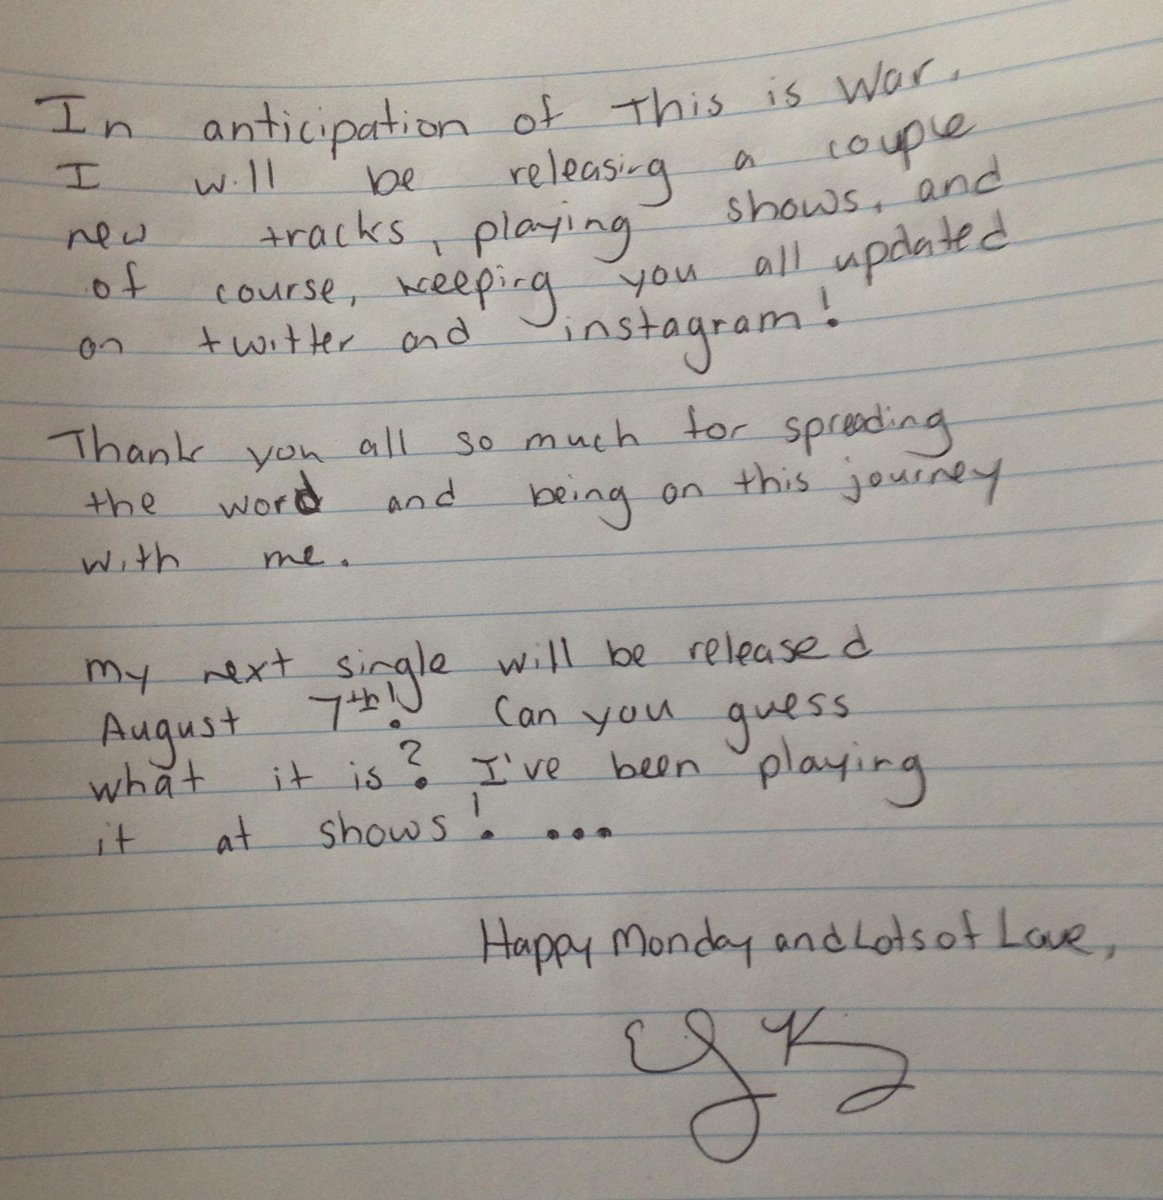 In anticipation of This is War,
I will be releasing a couple
new tracks, playing shows, and
of course, keeping you all updated
on twitter and instagram!
Thank you all so much for spreading
the word and being on this journey
with me.
My next single will be released
August 7th! Can you guess
what it is? I've been playing
it at shows! ...
Happy Monday and Lots of Love,